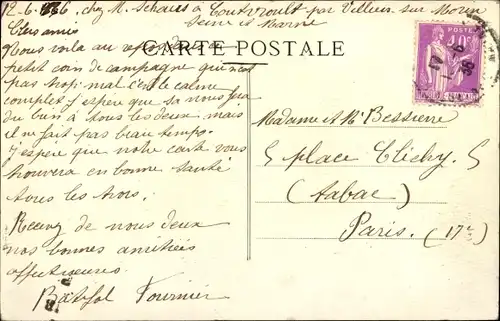 12-6-36, chez M. Schaus à Toutvroult par Villiers sur Morin
Seine et Marne
Chers amis
CARTE POSTALE
40c
Nous voila au repos dans un
petit coin de campagne qui n'est
pas trop mal c'est le calme
complet j'espère que sa nous fera
du bien à tous les deux mais
il ne fait pas beau temps.
J'espère que notre carte vous
trouvera en bonne santé
tous les trois.
Recevez de nous deux
nos bonnes amitiés
affectueuses.
Batifol Fournier
Madame et Mr Bessiere
5 place Clichy. 5
(tabac)
Paris. (17e)